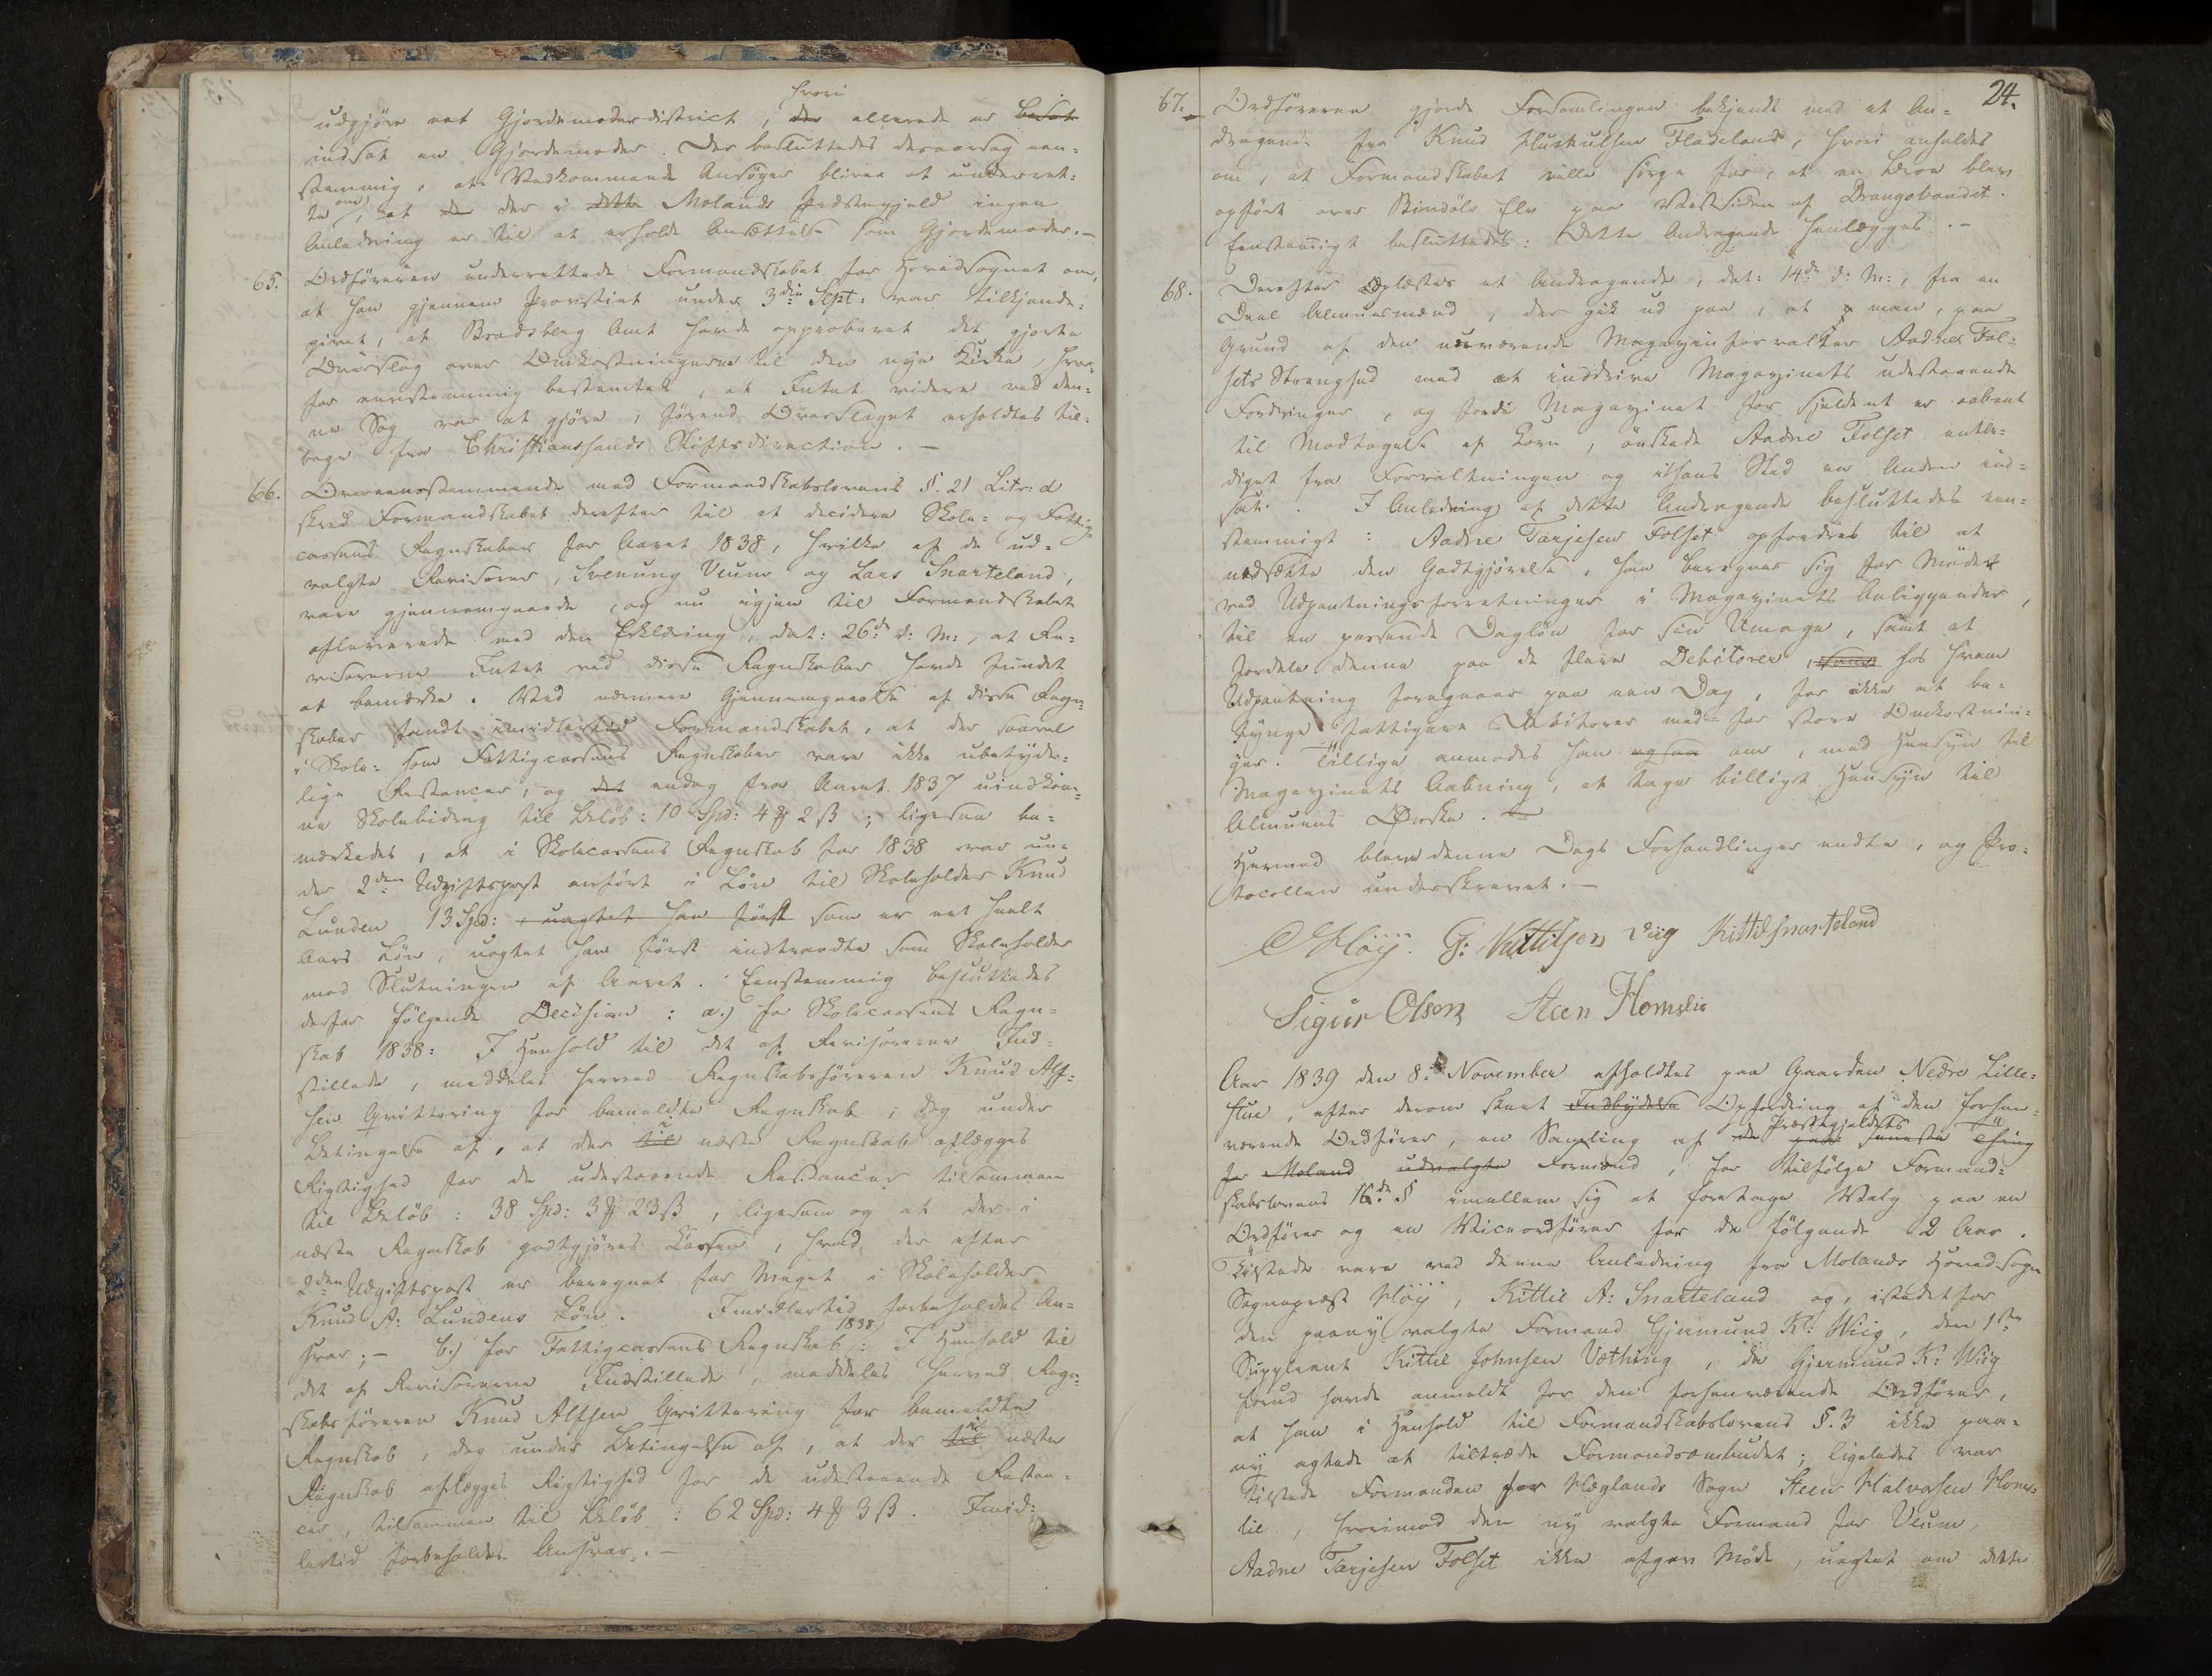 hvori
udgjøre eet Gjordemoderdistrict, der allerede er besat
indsat en Gjordemoder. Der besluttedes desaarsag een-
stemmig, at Vedkommende Ansøger bliver at underret-
te om, at der der i dette Molands Præstegjeld ingen
Anledning er til at erholde Ansættelse som Gjordemoder. —
65. Ordføreren underrettede Formandskabet for Hovedsognet om,
at han gjennem Provstiet under 3die Sept: var tilkjende-
givet, at Bradsberg Amt havde approberet det gjorte
Overslag over Omkostningerne til den nye Kirke, hvor-
for eenstemmig bestemtes, at Intet videre ved den-
ne Sag var at gjøre, førend Overslaget erholdtes til-
bage fra Christianssands Stiftsdirection. —
66. Overeensstemmende med Formandskabslovens §. 21 Litr: d
skred Formandskabet derefter til at decidere Skole- og Fattig-
cassens Regnskaber for Aaret 1838, hvilke af de ud-
valgte Revisorer, Svenung Veum og Lars Snarteland,
vare gjennemgaaede og nu igjen til Formandskabet
afleverede med den Erklæring, dat: 26de d: M:, at Re-
visorerne Intet ved disse Regnskaber havde fundet
at bemærke. Ved nærmere Gjennemgaaelse af disse Regn-
skaber fandt imidlertid Formandskabet, at der saavel
i Skole- som Fattigcassens Regnskaber vare ikke ubetyde-
lige Restancer, og det endog fra Aaret 1837 uindkom-
ne Skolebidrag til Beløb: 10 Spd: 4 ƶ 2 ß; ligesaa be-
mærkedes, at i Skolecassens Regnskab for 1838 var un-
der 2den Udgiftspost anført i Løn til Skoleholder Knud
Lunden 13 Spd: , uagtet han først som er eet heelt
Aars Løn, uagtet han først indtraadte som Skoleholder
mod Slutningen af Aaret. Eenstemmig besluttedes
derfor følgende Decision: a.) for Skolecassens Regn-
skab 1838: I Henhold til det af Revisorerne Ind-
stillede, meddeles herved Regnskabsføreren Knud Alf-
sen Qvittering for bemeldte Regnskab, dog under
Betingelse af, at der til i næste Regnskab aflægges
Rigtighed for de udestaaende Restancer tilsammen
til Beløb: 38 Spd: 3 ƶ 23 ß, ligesom og at der i
næste Regnskab godtgjøres Cassen, hvad der efter
2den Udgiftspost er beregnet for Meget i Skoleholder
Knud A: Lundens Løn. Imidlertid forbeholdes An-
svar; — b.) for Fattigcassens Regnskab 1838: I Henhold til
det af Revisorerne Indstillede, meddeles herved Regn-
skabsføreren Knud Alfsen Qvittering for bemeldte
Regnskab, dog under Betingelse af, at der til i næste
Regnskab aflægges Rigtighed for de udestaaende Restan-
cer, tilsammen til Beløb: 62 Spd: 4 ƶ 3 ß. Imid-
lertid forbeholdes Ansvar. —
24.
67. Ordføreren gjorde Forsamlingen bekjendt med et An-
dragende fra Knud Fladeland, hvori anholdes
om, at Formandskabet ville sørge for, at en Broe blev
opført over Elv paa Vestsiden af Drangsvandet.
Eenstemigt besluttedes: Dette Andragende henlægges. —
68. Derefter oplæstes et Andragende, dat: 14de d: M:, fra en
Deel Almuesmænd, der gik ud paa, at man, paa
Grund af den nuværende Magazinforvalter Aadne Fol-
sets Strenghed med at inddrive Magazinets udestaaende
Fordringer, og fordi Magazinet for sjeldent er aabent
til Modtagelse af Korn, ønskede Aadne Folset entle-
diget fra Forvaltningen og i hans Sted en Anden ind-
sat. I Anledning af dette Andragende besluttedes een-
stemmigt: Aadne Tarjesen Folset opfordres til at
nedsætte den Godtgjørelse, han beregner sig for Møder
ved Udpantningsforretninger i Magazinets Anliggender,
til en passende Dagløn for sin Umage, samt at
fordele denne paa de flere Debitorer, som hos hvem
Udpantning foregaaer paa een Dag, for ikke at be-
tynge fattigere Debitorer med for store Omkostnin-
ger. Tillige anmodes han ogsaa om, med Hensyn til
Magazinets Aabning, at tage billigt Hensyn til
Almuens Ønske. —
Hermed bleve denne Dags Forhandlinger endte, og Pro-
tocollen underskrevet. —
Kløij. G: Kittilsen Viig Kittil Snarteland
Sigur Olsen Steen Homslie
Aar 1839 den 8: November afholdtes paa Gaarden Nedre Lille-
stue, efter derom skeet Indbydelse Opfordring af den forhen-
værende Ordfører, en Samling af de Præstegjeldets
for Moland udvalgte Formænd, for tilfølge Formand-
skabslovens 16de § imellem sig at foretage Valg paa en
Ordfører og en Viceordfører for de følgende 2 Aar.
Tilstede vare ved denne Anledning fra Molands Hovedsogn
Sognepræst Kløij, Kittil A: Snarteland og, istedetfor
den paany valgte Formand Gjermund K: Wiig, den 1ste
Suppleant Kittil Johnsen Væthing, da Gjermund K: Wiig
forud havde anmeldt for den forhenværende Ordfører,
at han i Henhold til Formandskabslovens §. 3 ikke paa-
ny agtede at tiltræde Formandsombudet; ligeledes var
tilstede Formanden for Hæglands Sogn Steen Halvorsen Homs-
lie, hvorimod den ny valgte Formand for Veum,
Aadne Tarjesen Folset ikke afgav Møde, uagtet om dette